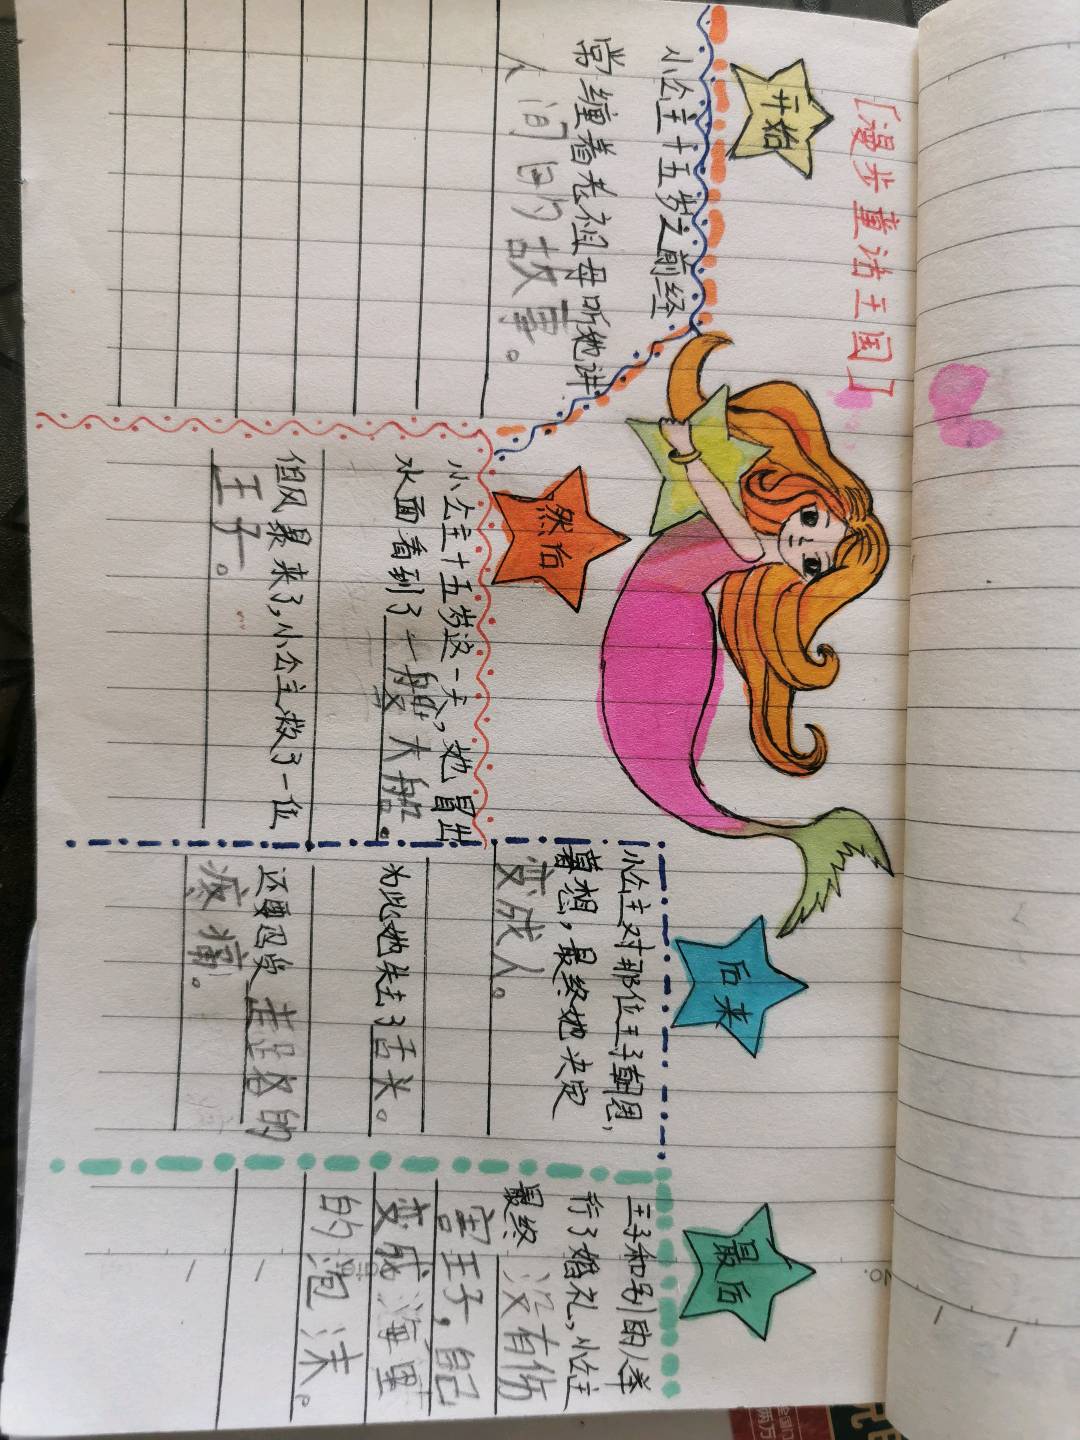 ［漫步童话王国］
开始
小公主十五岁之前经
常缠着老祖母听她讲
人间的故事。
然后
小公主十五岁这一天，她冒出
水面看到了一艘大船。
但风暴来了，小公主救了一位
王子。
后来
小公主对那位王子朝思
暮想，最终她决定
变成人。
为此她失去了舌头。
还要忍受走路的
疼痛。
最后
王子和别的人举
行了婚礼，小公主
最终没有伤
害王子，自己
变成海里
的泡沫。